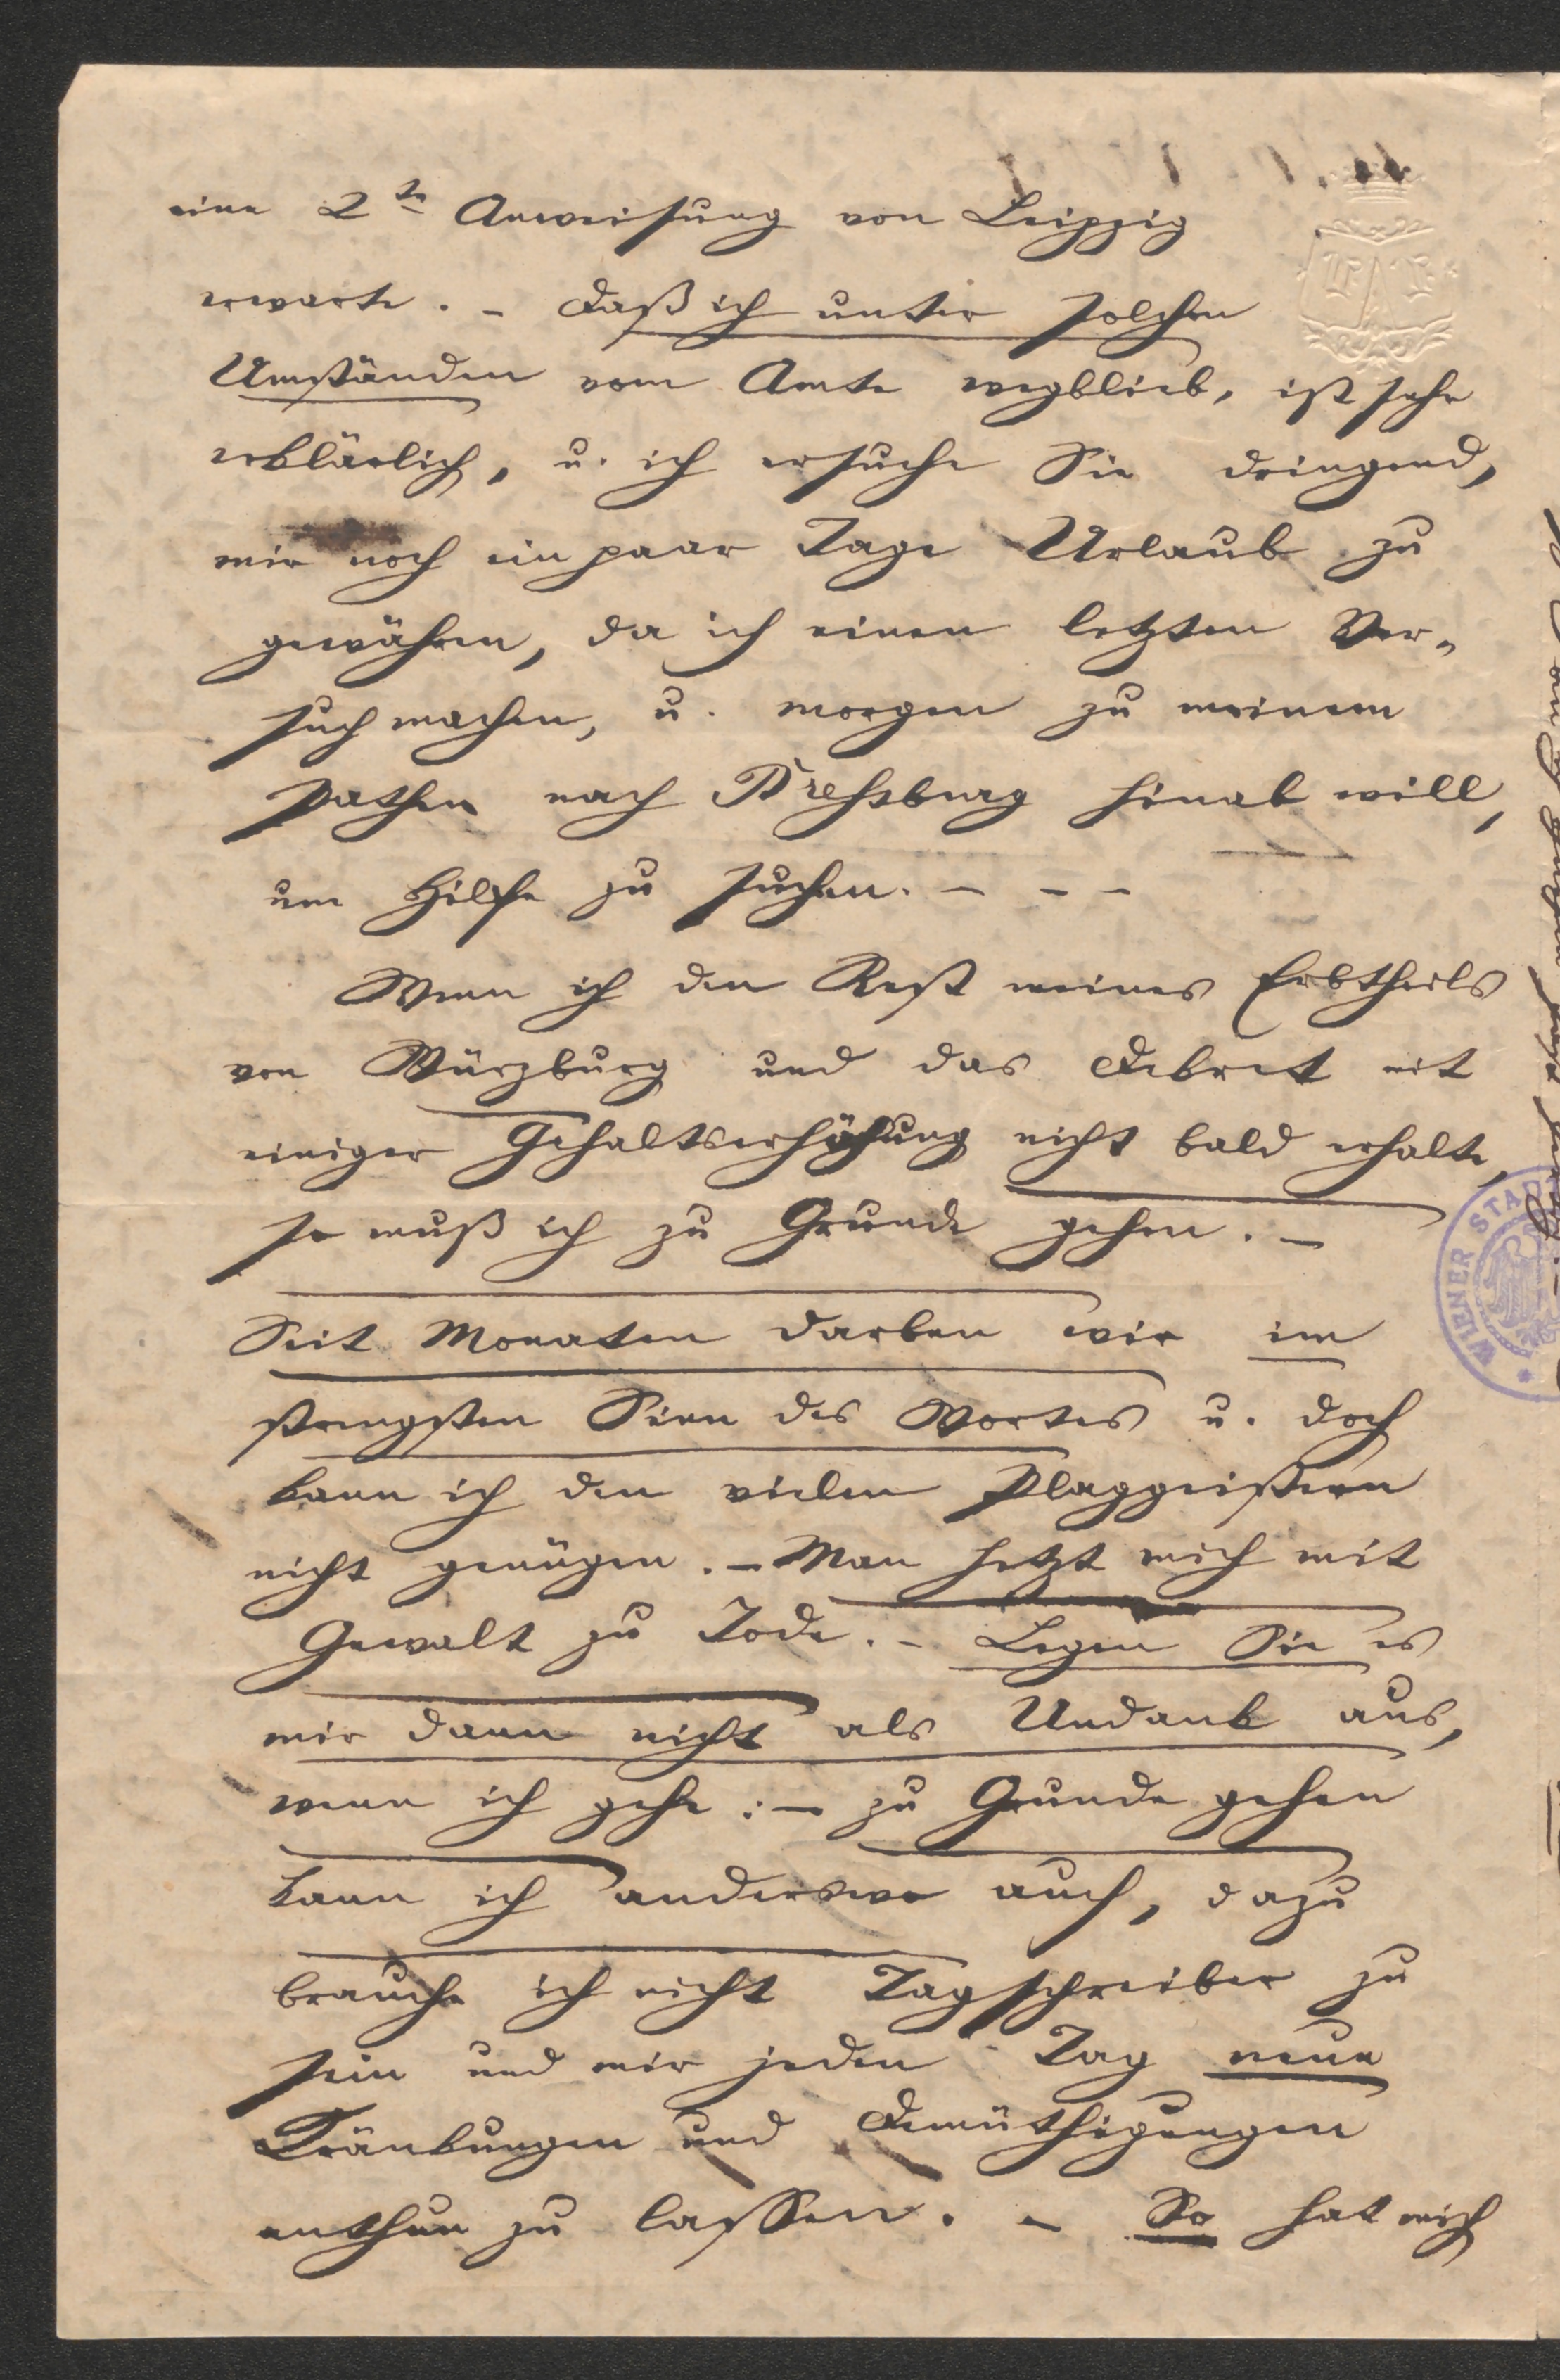 eine 2te Anweisung von Leipzig
erwarte. – Daß ich unter solchen
Umständen vom Amte wegblieb, ist sehr
erklärlich, u. ich ersuche Sie dringend,
mir noch ein paar Tage Urlaub zu
gewähren, da ich einen letzten Ver-
such machen, u. morgen zu meinem
Pathen nach Preßburg hinab will,
um Hilfe zu suchen. – – –
Wenn ich den Rest meines Erbtheils
von Würzburg und das Dekret mit
einiger Gehaltserhöhung nicht bald erhalte,
so muß ich zu Grunde gehen. –
Seit Monaten darben wir im
strengsten Sinn des Wortes u. doch
kann ich den vielen Plaggeistern
nicht genügen. – Man hetzt mich mit
Gewalt zu Tode. – Legen Sie es
mir dann nicht als Undank aus,
wenn ich gehe: – zu Grunde gehen
kann ich anderswo auch, dazu
brauche ich nicht Tagschreiber zu
sein und mir jeden Tag neue
Kränkungen und Demüthigungen
anthun zu lassen. – So hat mich
WIENER STAD